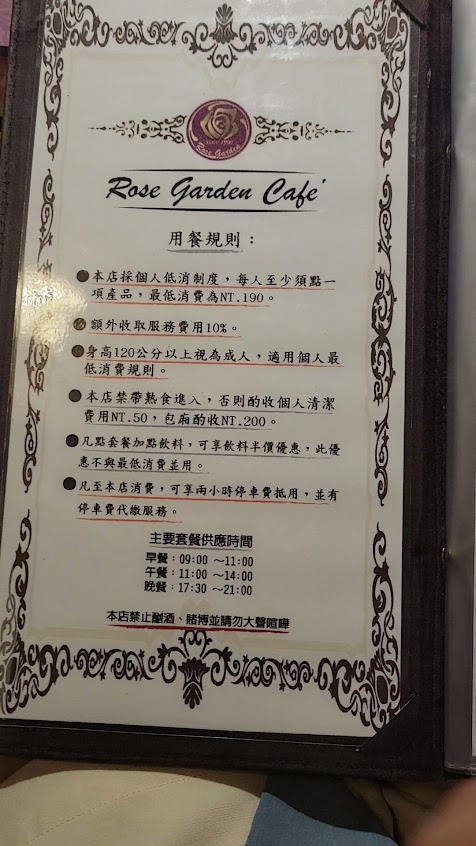 SINCE 1990
Rose Garden
Rose Garden Cafe'
用餐規則：
●本店採個人低消制度，每人至少須點一
項產品，最低消費為NT.190。
●額外收取服務費用10%。
●身高120公分以上視為成人，適用個人最
低消費規則。
●本店禁帶熟食進入，否則酌收個人清潔
費用NT.50，包廂酌收NT.200。
●凡點套餐加點飲料，可享飲料半價優惠，此優
惠不與最低消費並用。
●凡至本店消費，可享兩小時停車費抵用，並有
停車費代繳服務。
主要套餐供應時間
早餐：09:00 ～11:00
午餐：11:00 ～14:00
晚餐：17:30 ～21:00
本店禁止酗酒、賭博並請勿大聲喧嘩